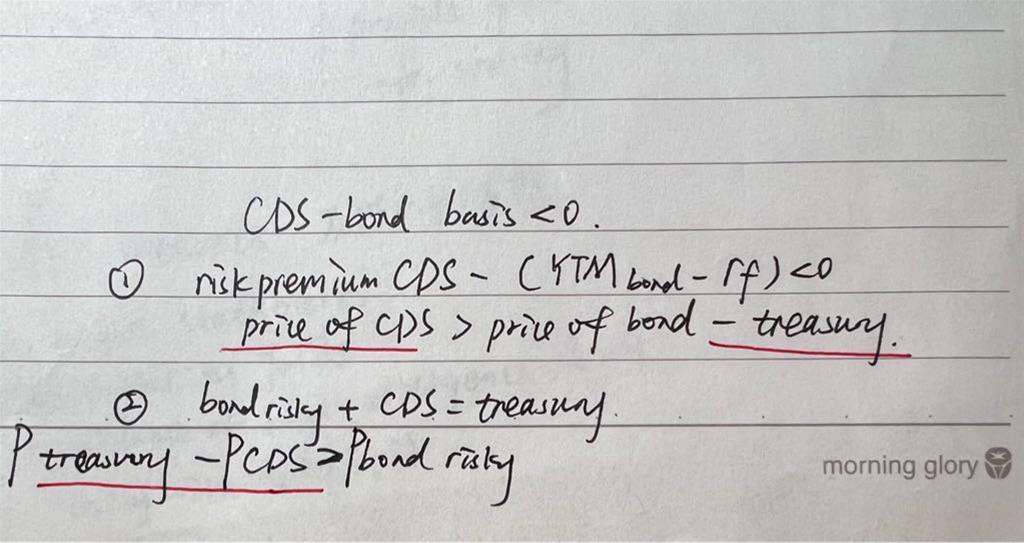 CDS-bond basis <0.
① risk premium CDS - (YTM bond - rf) <0
price of CDS > price of bond - treasury.
② bond risky + CDS = treasury.
P treasury - PCDS > Pbond risky
morning glory